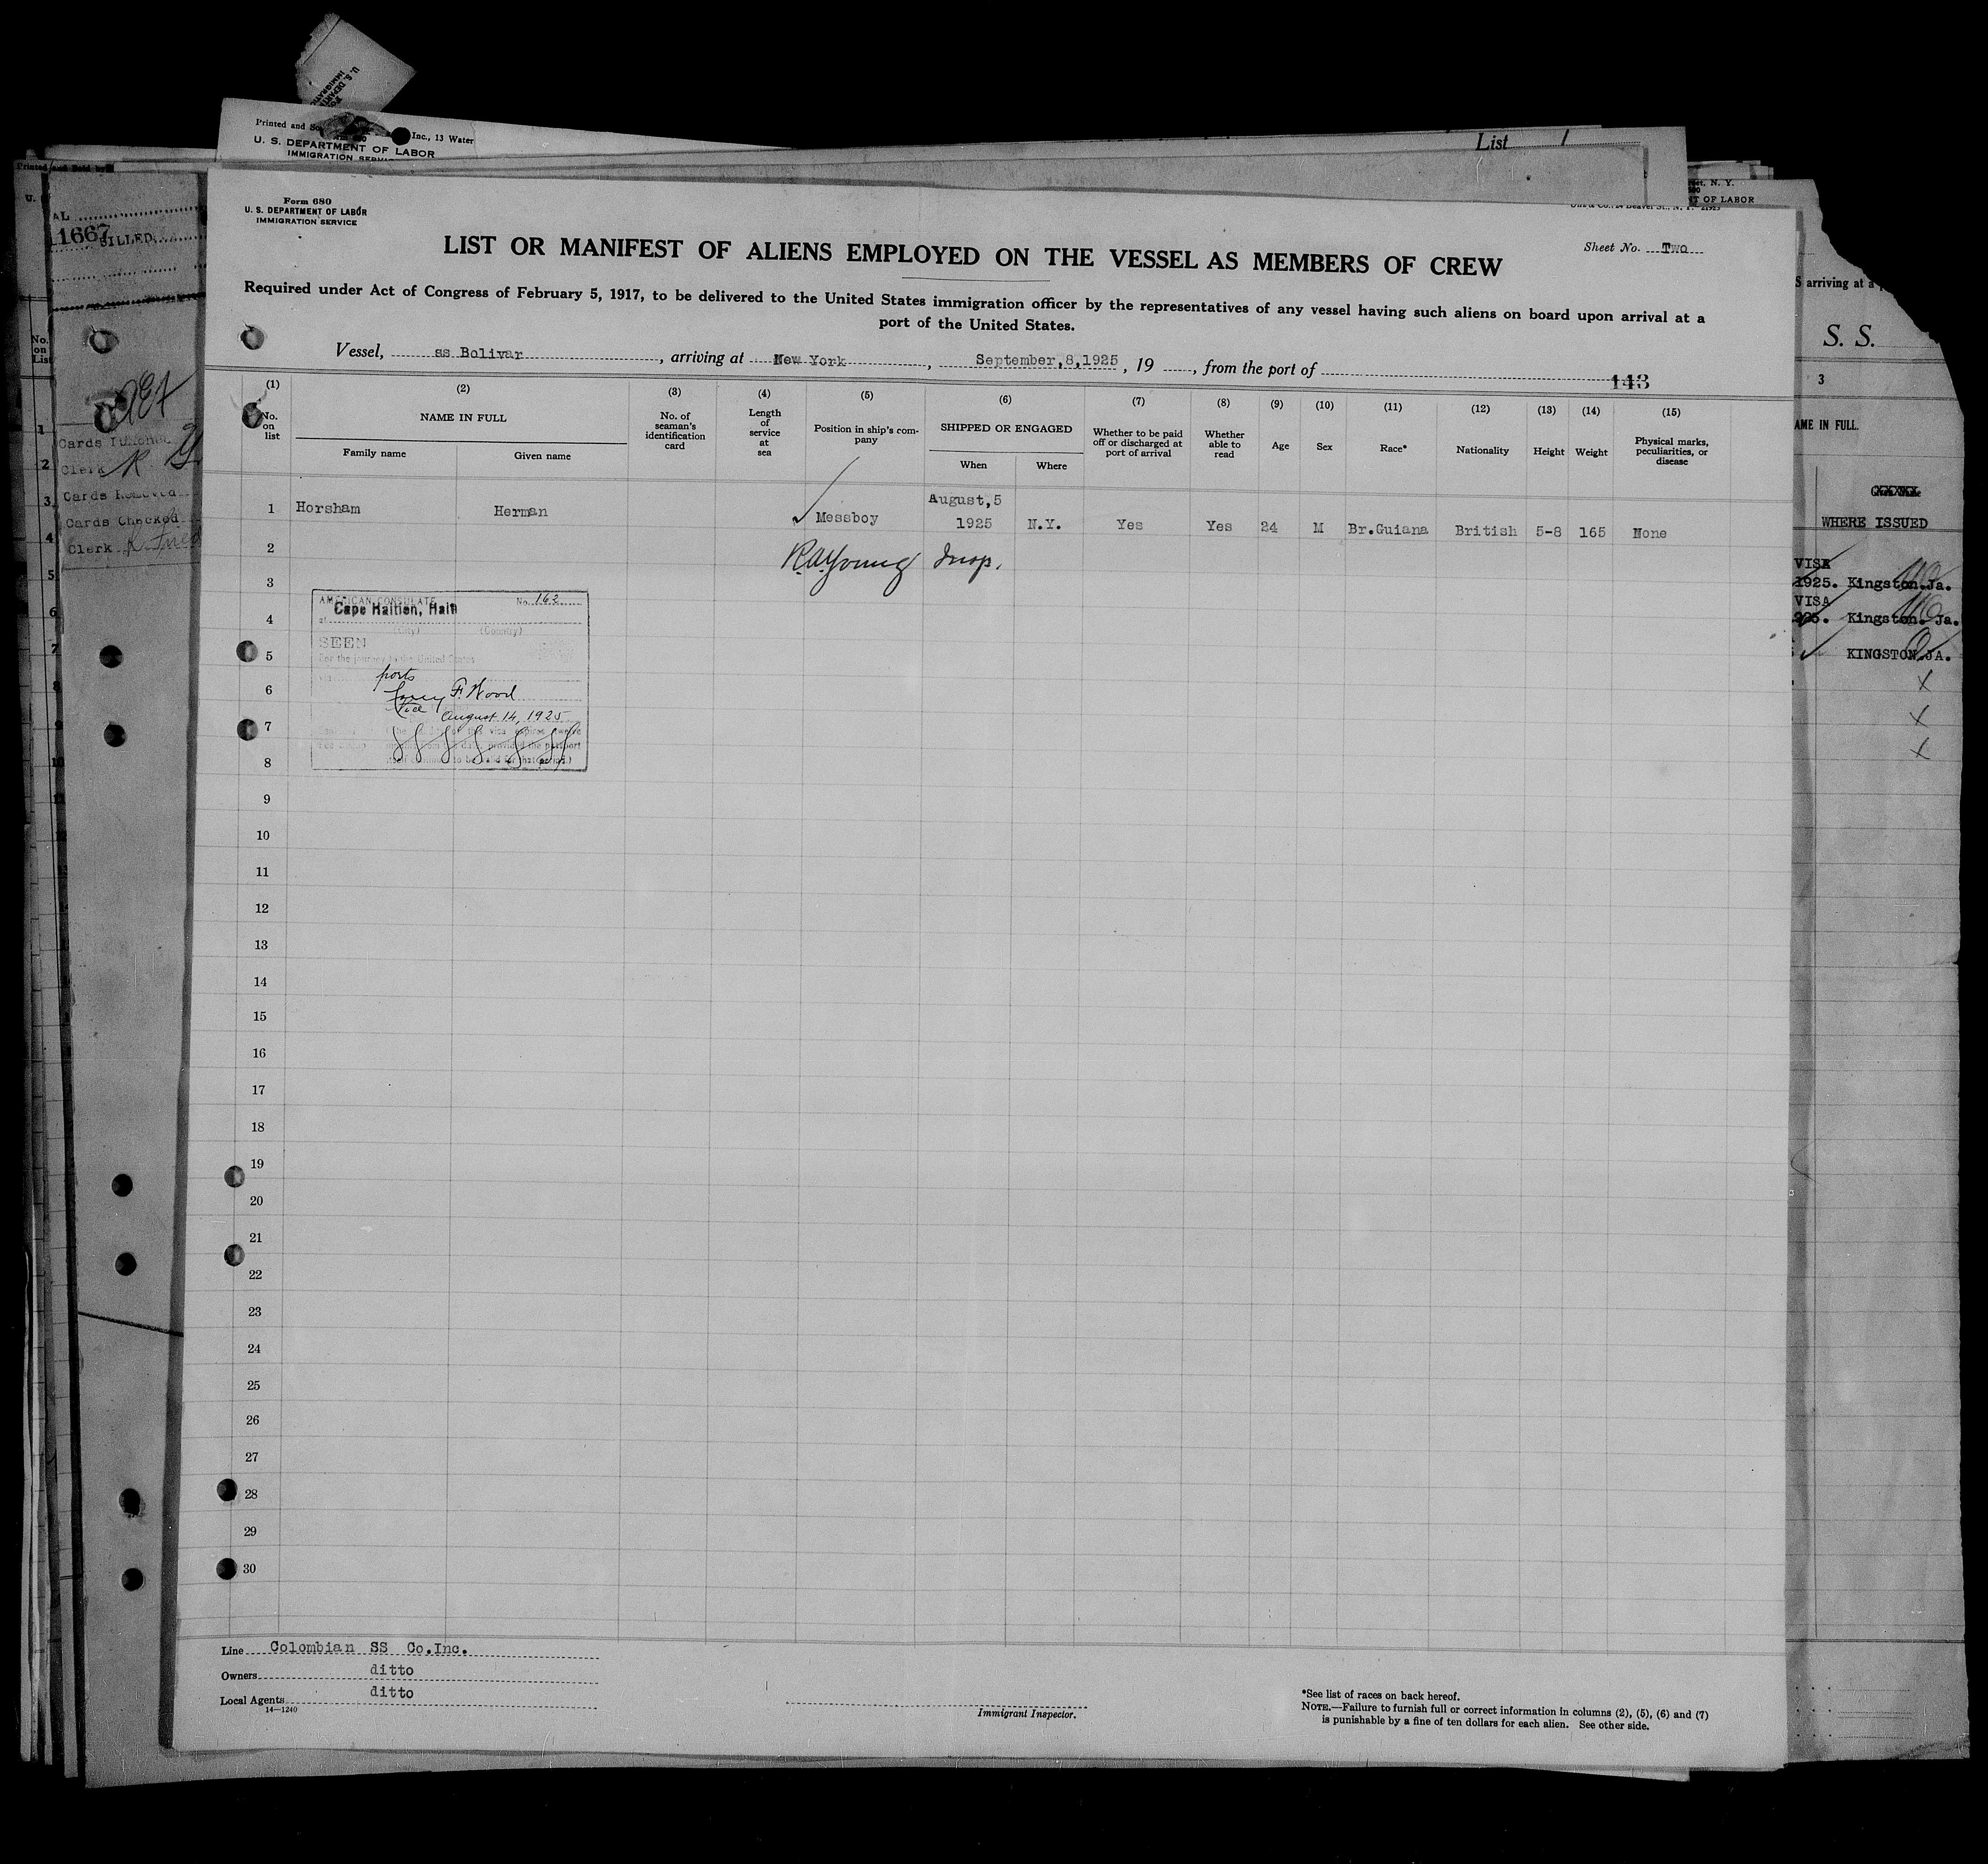 U. S. DEPARTMENT OF LABOR
Printed and
Inc., 13 Water
U. S. DEPARTMENT OF LABOR
IMMIGRATION SERVICE
List 1
Form 680
U. S. DEPARTMENT OF LABOR
IMMIGRATION SERVICE
LIST OR MANIFEST OF ALIENS EMPLOYED ON THE VESSEL AS MEMBERS OF CREW
Sheet No. Two
Required under Act of Congress of February 5, 1917, to be delivered to the United States immigration officer by the representatives of any vessel having such aliens on board upon arrival at a
port of the United States.
Vessel, ss Bolivar, arriving at New York, September,8,1925, 19 , from the port of
143
(1) (2) (3) (4) (5) (6) (7) (8) (9) (10) (11) (12) (13) (14) (15)
No. on list
NAME IN FULL
Family name
Given name
No. of seaman's identification card
Length of service at sea
Position in ship's company
SHIPPED OR ENGAGED
When
Where
Whether to be paid off or discharged at port of arrival
Whether able to read
Age
Sex
Race*
Nationality
Height
Weight
Physical marks, peculiarities, or disease
1 Horsham Herman Messboy August,5 1925 N.Y. Yes Yes 24 M Br.Guiana British 5-8 165 None
2 R.A.Young Insp.
3
4
5
6
7
8
9
10
11
12
13
14
15
16
17
18
19
20
21
22
23
24
25
26
27
28
29
30
AMERICAN CONSULATE No. 162
at Cape Haitien, Haiti
(City) (Country)
SEEN
For the journey to the United States
ports
F. Wood
Vice
August 14, 1925
Line Colombian SS Co.Inc.
Owners ditto
Local Agents ditto
14—1240
Immigrant Inspector.
*See list of races on back hereof.
NOTE.—Failure to furnish full or correct information in columns (2), (5), (6) and (7)
is punishable by a fine of ten dollars for each alien. See other side.
11667
FILLED
Cards
Clerk
Cards Removed
Cards Checked
Clerk
No. on List
1
2
3
4
5
6
7
8
9
10
11
, N. Y.
OF LABOR
S arriving at a
S. S.
3
AME IN FULL.
WHERE ISSUED
VISA
1925. Kingston.Ja.
VISA
Kingston. Ja.
KINGSTON,JA.
X
X
X